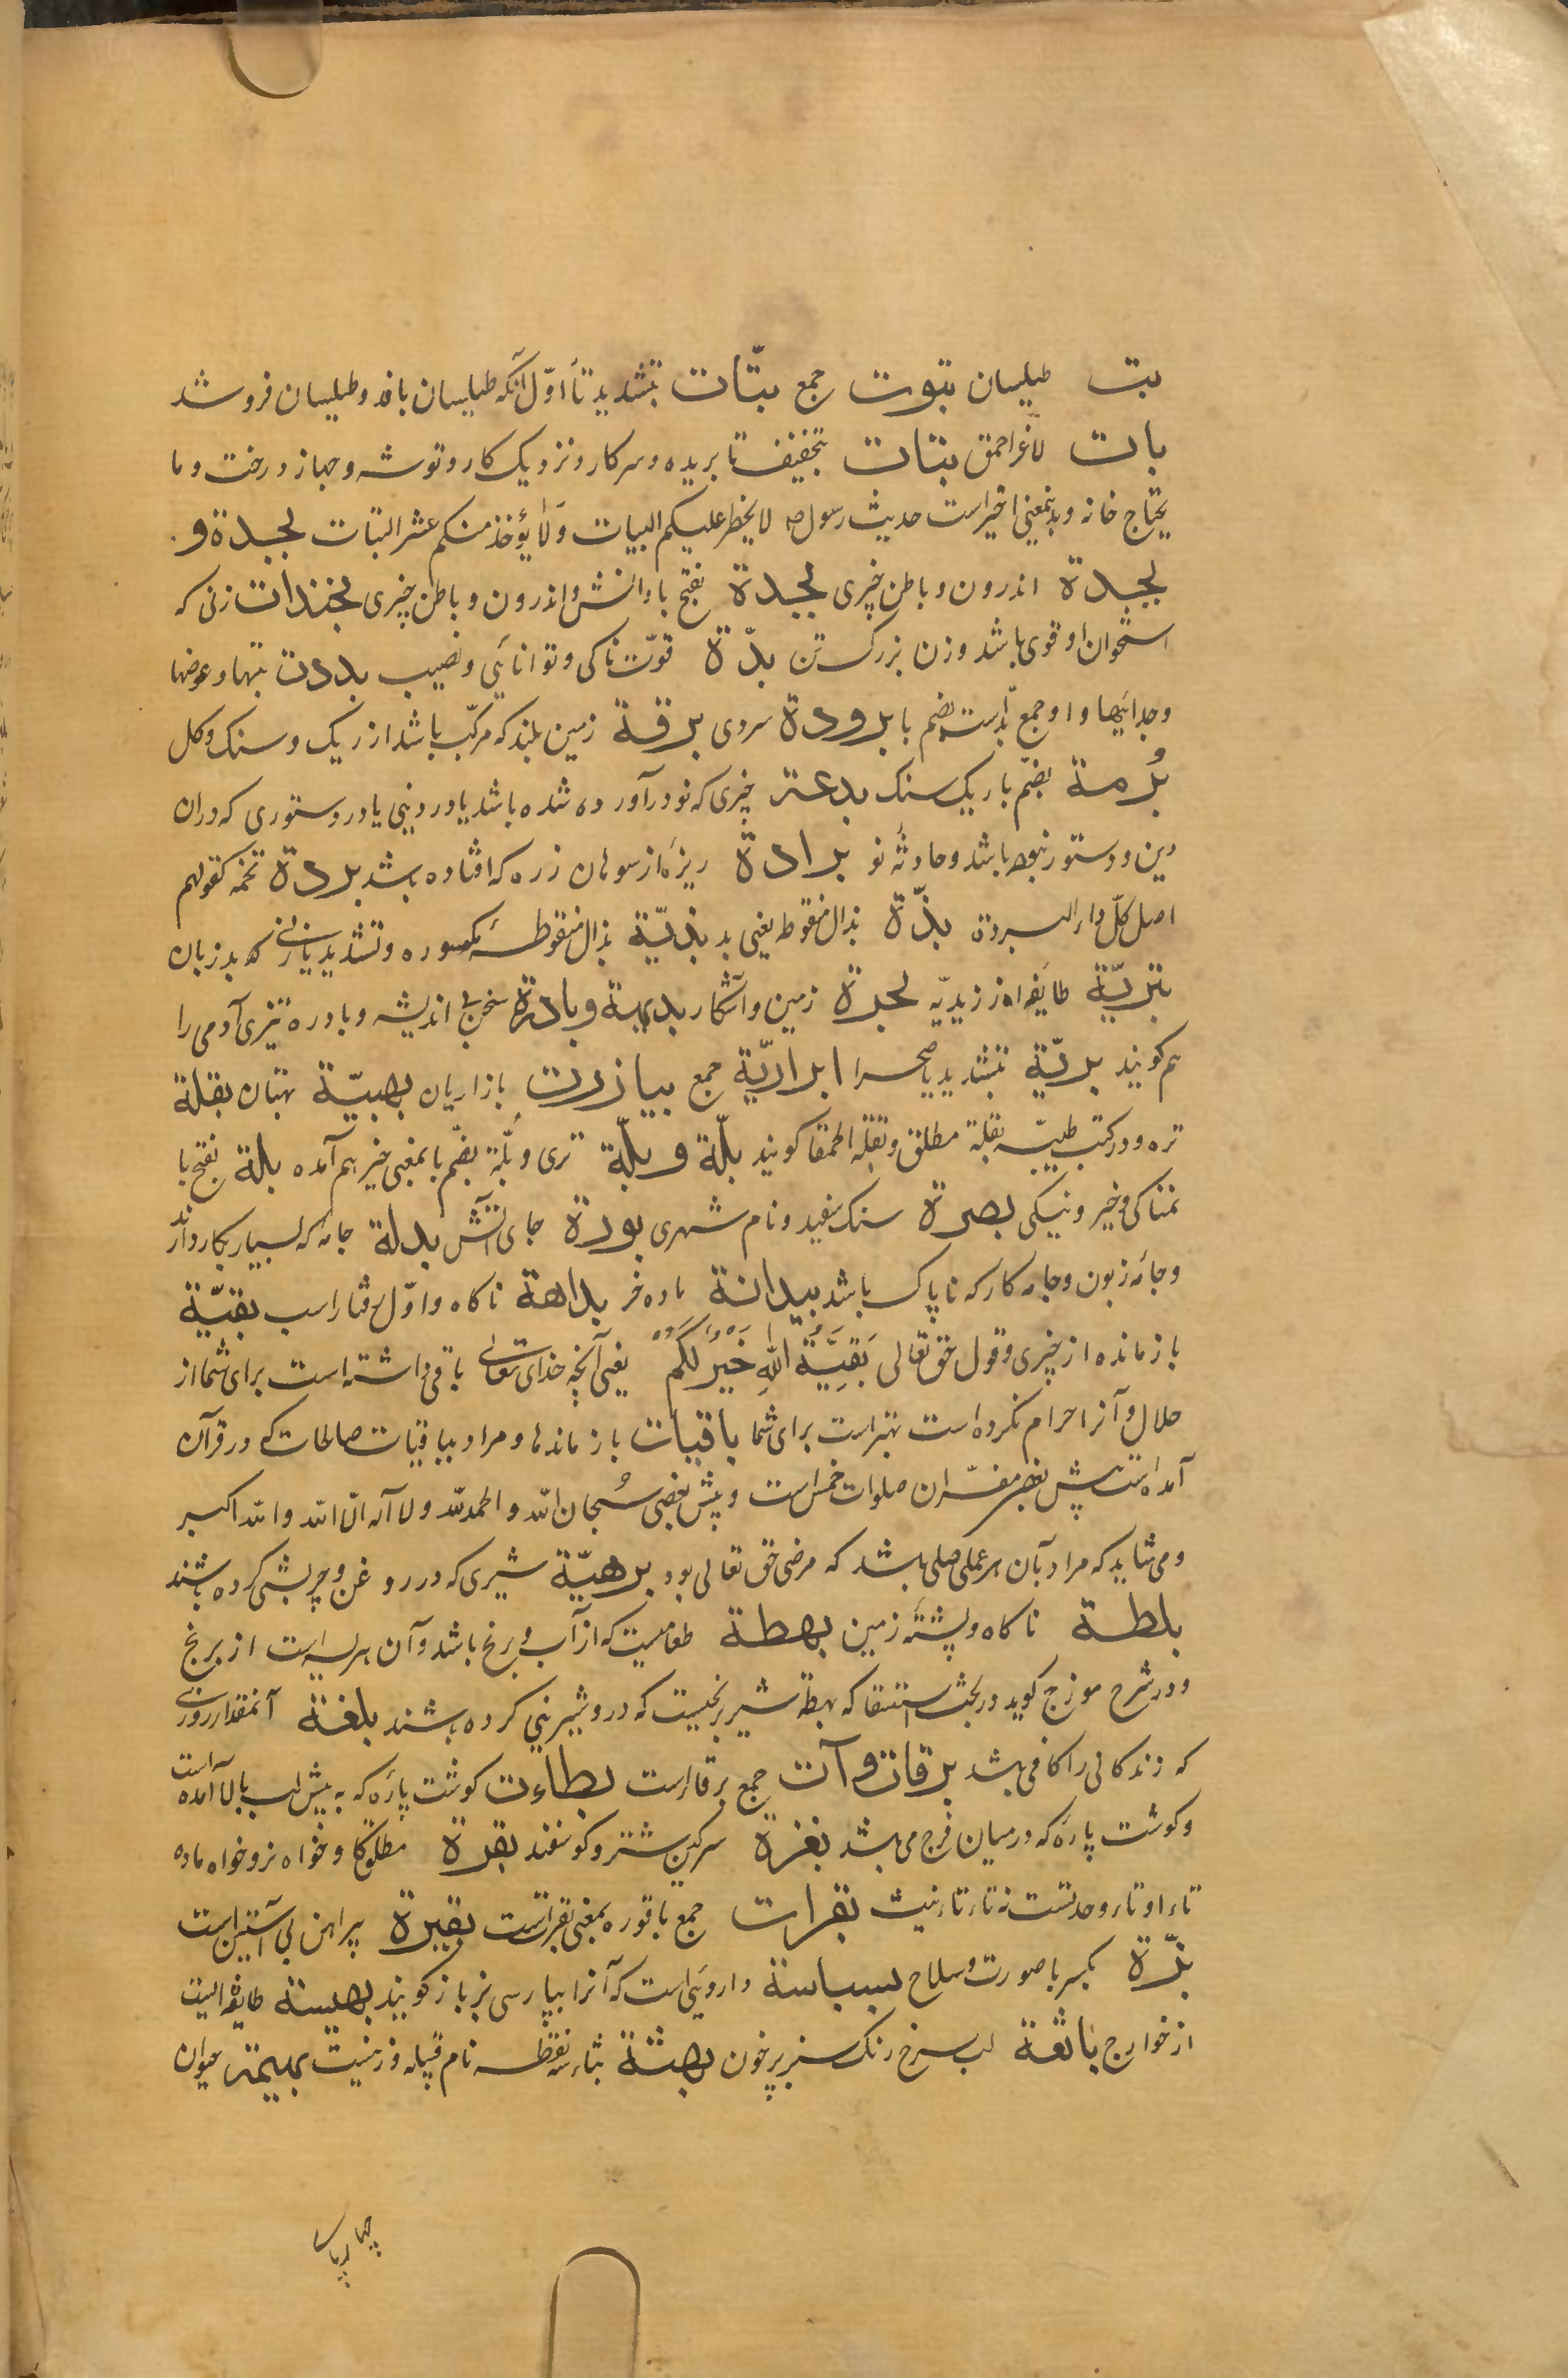 بت طیلسان بتوت جمع بتّات بتشدید تا اوّل آنکه طیلسان بافد و طیلسان فروشد
بات لاغر احمق بتات بتخفیف تا بریده و سر کار و نزدیک کار و توشه و جهاز و رخت و ما
یحتاج خانه و بدینمعنی اخیر است حدیث رسول ص لا یحظر علیکم النبات ولا یؤخذ منکم عشر البتات بجدة و
بجدة اندرون و باطن چیزی بجدة بفتح با دانش و اندرون و باطن چیزی بخندات زنی که
استخوان او قوی باشد و زن بزرک تن بدّة قوّت ناکی و توانائی و نصیب بددت بتها و عوضها
و جدائیها و او جمع بدّ است بضم با برودة سردی برقة زمین بلند که مرکّب باشد از ریک و سنک و کل
بُرمة بضمّ با ریک سنک بدعة چیزی که نو در آورده شده باشد یا در دینی یا در دستوری که در آن
دین و دستور نبوده باشد و حادثهٔ نو برادة ریزهٔ از سوهان زده که افتاده باشد بردة تخمه کقولهم
اصل کلّ داء البردة بذّة بذال منقوط یعنی بد بذیّة بذال منقوطهٔ مکسوره و تشدید یا زنی که بد زبان
بتریّة طایفهٔ از زیدیّه بحرة زمین و آشکار بدیهة و بادرة سخن بی اندیشه و بادره تیزی آدمی را
هم کویند بریّة بتشدید یا صحرا براریّة جمع بیازرت بازاریان بهیّة بهتان بقلة
تره و در کتب طبیّه بقلة مطلق و بقلة الحمقا کویند بلّة و بلّة تری و بلّة بضمّ با بمعنی خیر هم آمده بلة بفتح با
نمناکی و خیر و نیکی بصرة سنک سفید و نام شهری بودة جای آتش بدلة جامهٔ که بسیار بکار دارند
و جامهٔ زبون و جامه کار که ناپاک باشد بیدانة ماده خر بداهة ناکاه و اوّل رفتار اسب بقیّة
باز مانده از چیزی و قول حق تعالی بَقِیَّةُ اللهِ خَیْرٌ لَکُمْ یعنی آنچه خدای تعالی باقی داشته است برای شما از
حلال و آنرا حرام نکرده است بهتر است برای شما باقیات باز مانده‌ها و مراد بباقیات صالحات که در قرآن
آمده است پیش بعضی مفسّران صلوات خمس است و پیش بعضی سُبحان الله و الحمد لله و لا اله الّا الله و الله اکبر
و می شاید که مراد بآن هر عملی صالح باشد که مرضی حق تعالی بود برهیّة شیری که در رو غن و چربش کرده باشند
بلطة ناکاه و پشتهٔ زمین بهطة طعامیست که از آب و برنج باشد و آن هریسه است از برنج
و در شرح موزج کوید در بحث استسقا که بهطة شیر برنجیست که درو شیرینی کرده باشند بلغة آنمقدار روزی
که زندکانی را کافی باشد برقات و آت جمع برقاء است بظاءت کوشت پارهٔ که به پیش لب بالا آمده است
و کوشت پارهٔ که در میان فرج می باشد بغرة سرکین شتر و کوسفند بقرة مطلق کاو خواه نر و خواه ماده
تاء او تاء وحدتست نه تاء تانیث بقرات جمع باقوره بمعنی بقراتست بقیرة پیراهن بی آستین است
بزّة بکسر با صورت و سلاح بسباسة داروئی است که آنرا بپارسی بزباز کویند بهیسة طایفه ایست
از خوارج باثعة لب سرخ رنک سبز پر خون بهثة بثاء سه نقطه نام قبیله و زنیست بهیمة حیوان
چهارپای